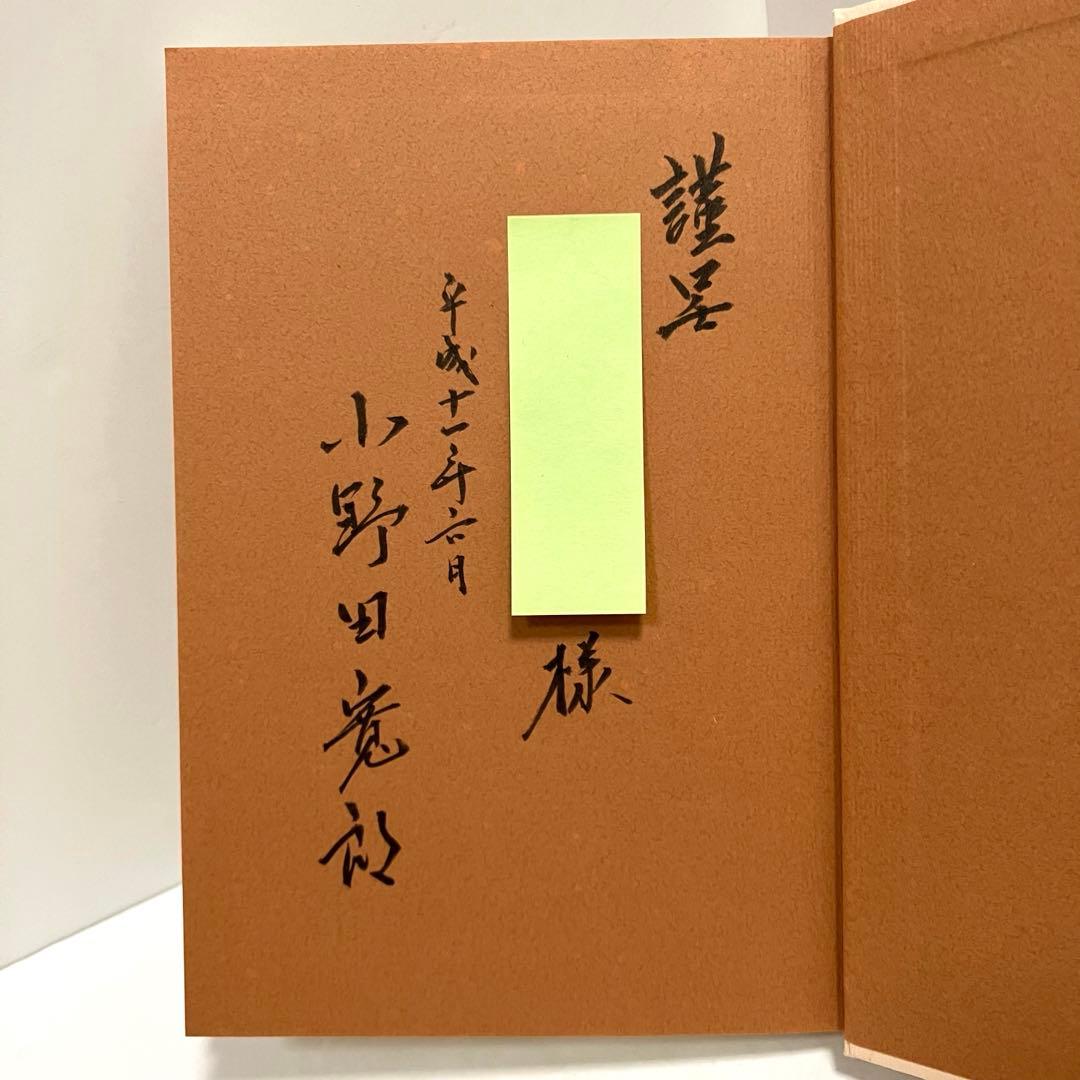 謹呈
様
平成十一年六月
小野田寛郎